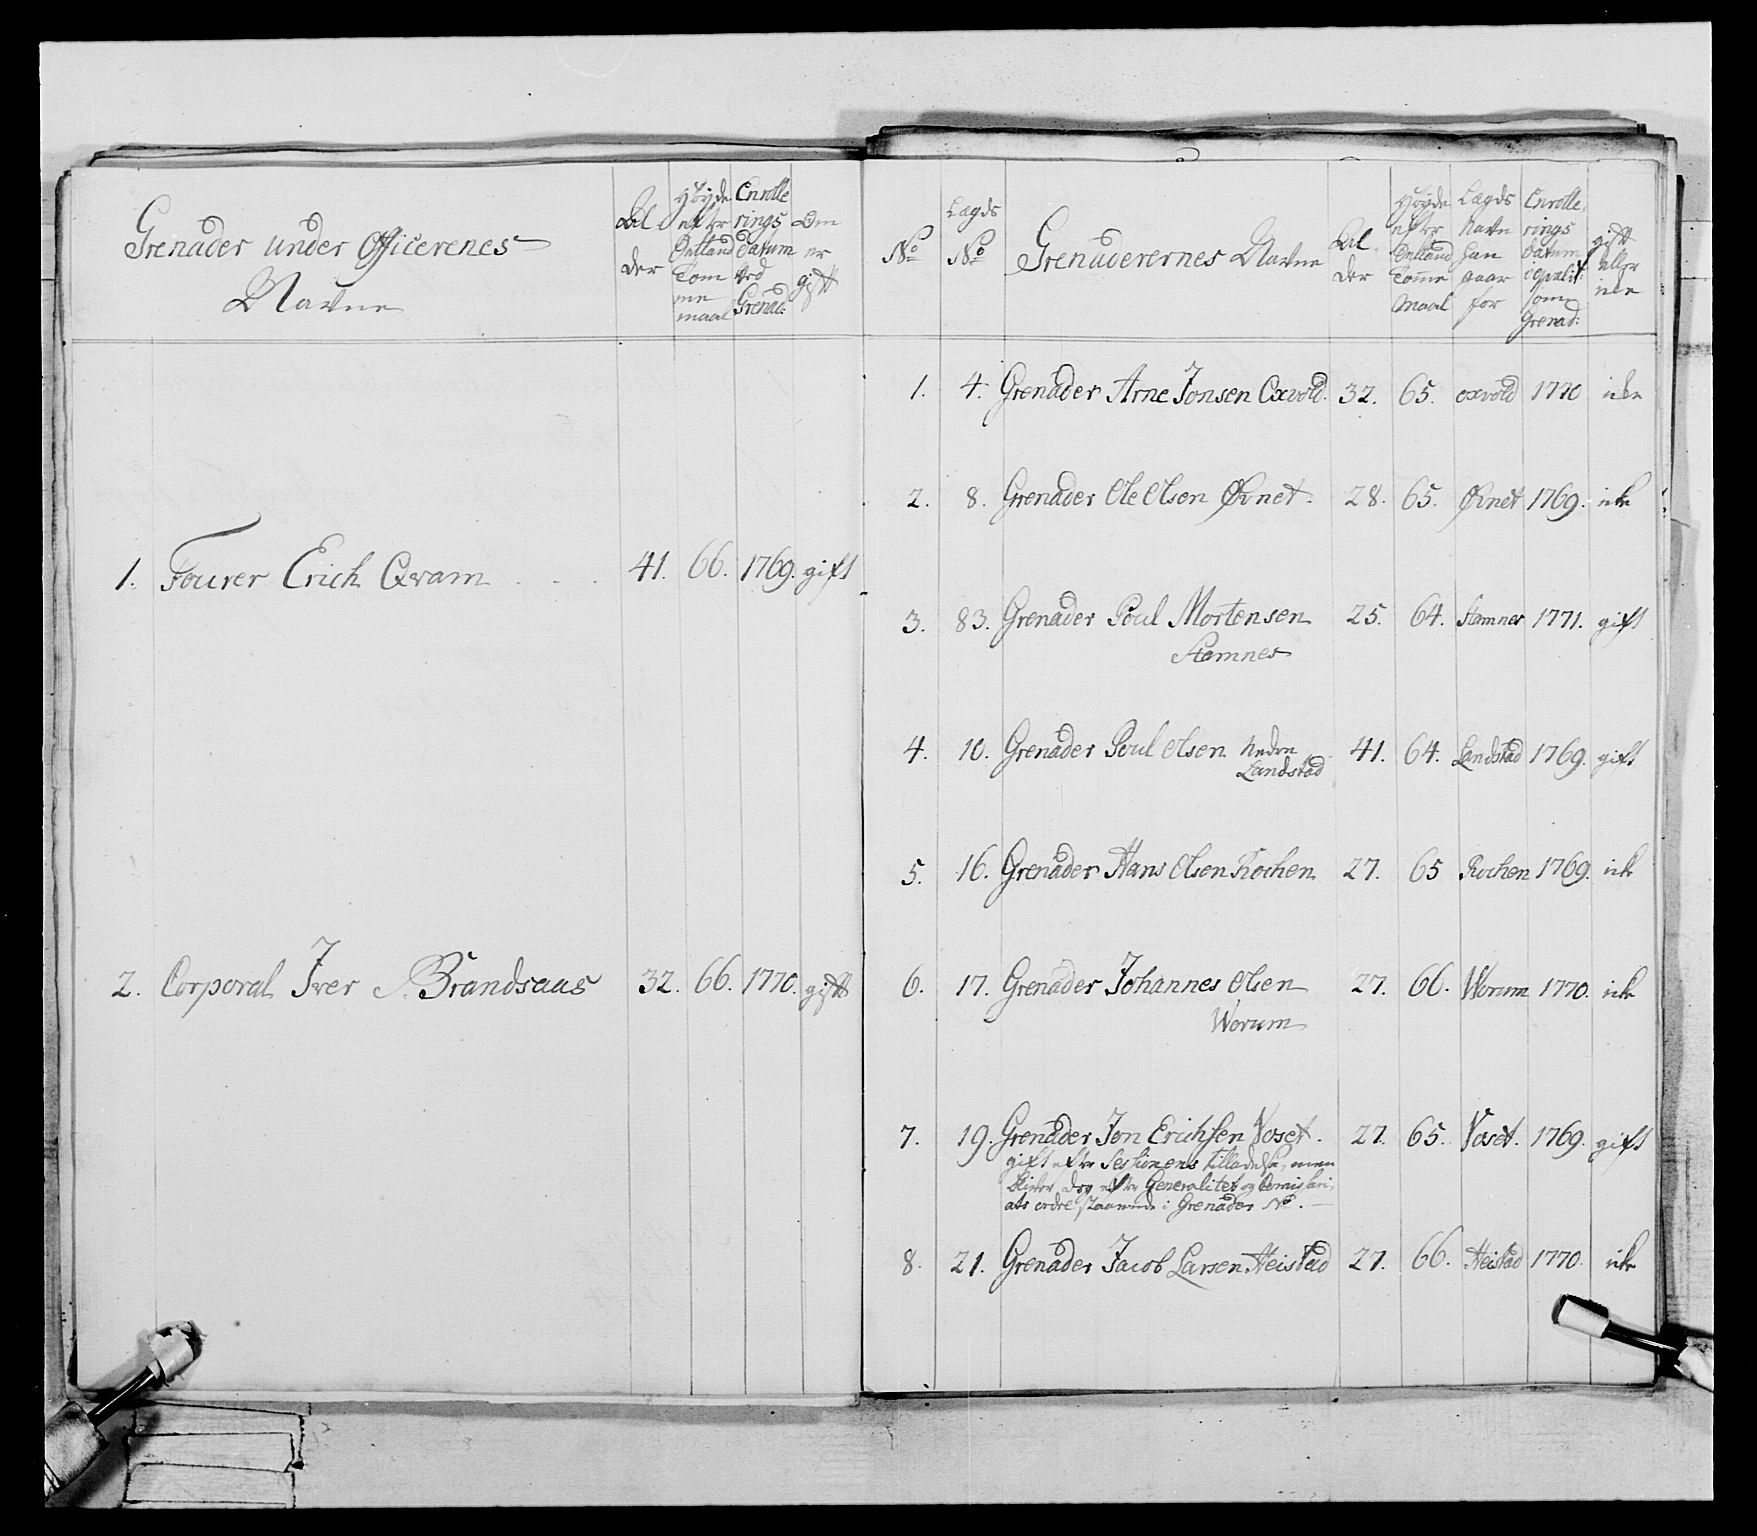 Grenader under Officerenes
Navne
Al
der
Høyde
efter
Ontland
Tom
me
maal
Enrolle
rings
datum
ved
Grenad:
Om
er
gift
1. Fourer Erich Qvam 41. 66. 1769. gift
2. Corporal Iver Brandsaas 32. 66. 1770. gift
No
Lægds
No
Grenaderernes Navne
Al
der
Høyde
efter
Tomme
Maal
Lægds
Navn
han
gaar
for
Enrolle
rings
datum
som
Grenad:
gift
eller
1. 4. Grenader Arne Jonsen Oxvold. 32. 65. oxvold 1770 icke
2. 8. Grenader Ole Olsen Øvnet. 28. 65. Øvnet 1769. icke
3. 83. Grenader Poul Mortensen 25. 64. Stamnes 1771. gift
Stamnes
4. 10. Grenader Poul Olsen Nedre 41. 64. Landstad 1769. gift
Landstad
5. 16. Grenader Hans Olsen Rochen 27. 65 Rochen 1769. icke
6. 17. Grenader Johannes Olsen 27. 66. Worum 1770. icke
Worum
7. 19. Grenader Jon Erichsen Voset. 27. 65. Voset. 1769. gift
gift efter Sessionens tilladelse, men
bliver dog efter Generalitet og Comissari,
ats ordre staaende i Grenader No.
8. 21. Grenader Jacob Larsen Heistad 27. 66. Heistad 1770. icke